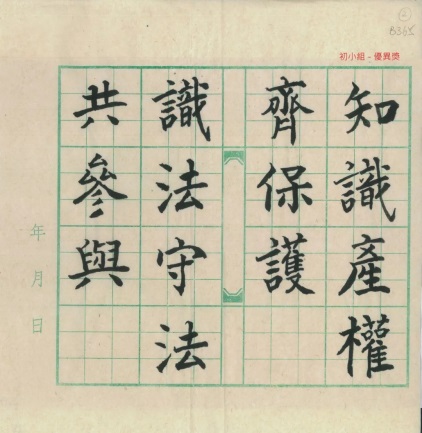 初小組 - 優異獎
知識產權
齊保護
識法守法
共參與
年月日